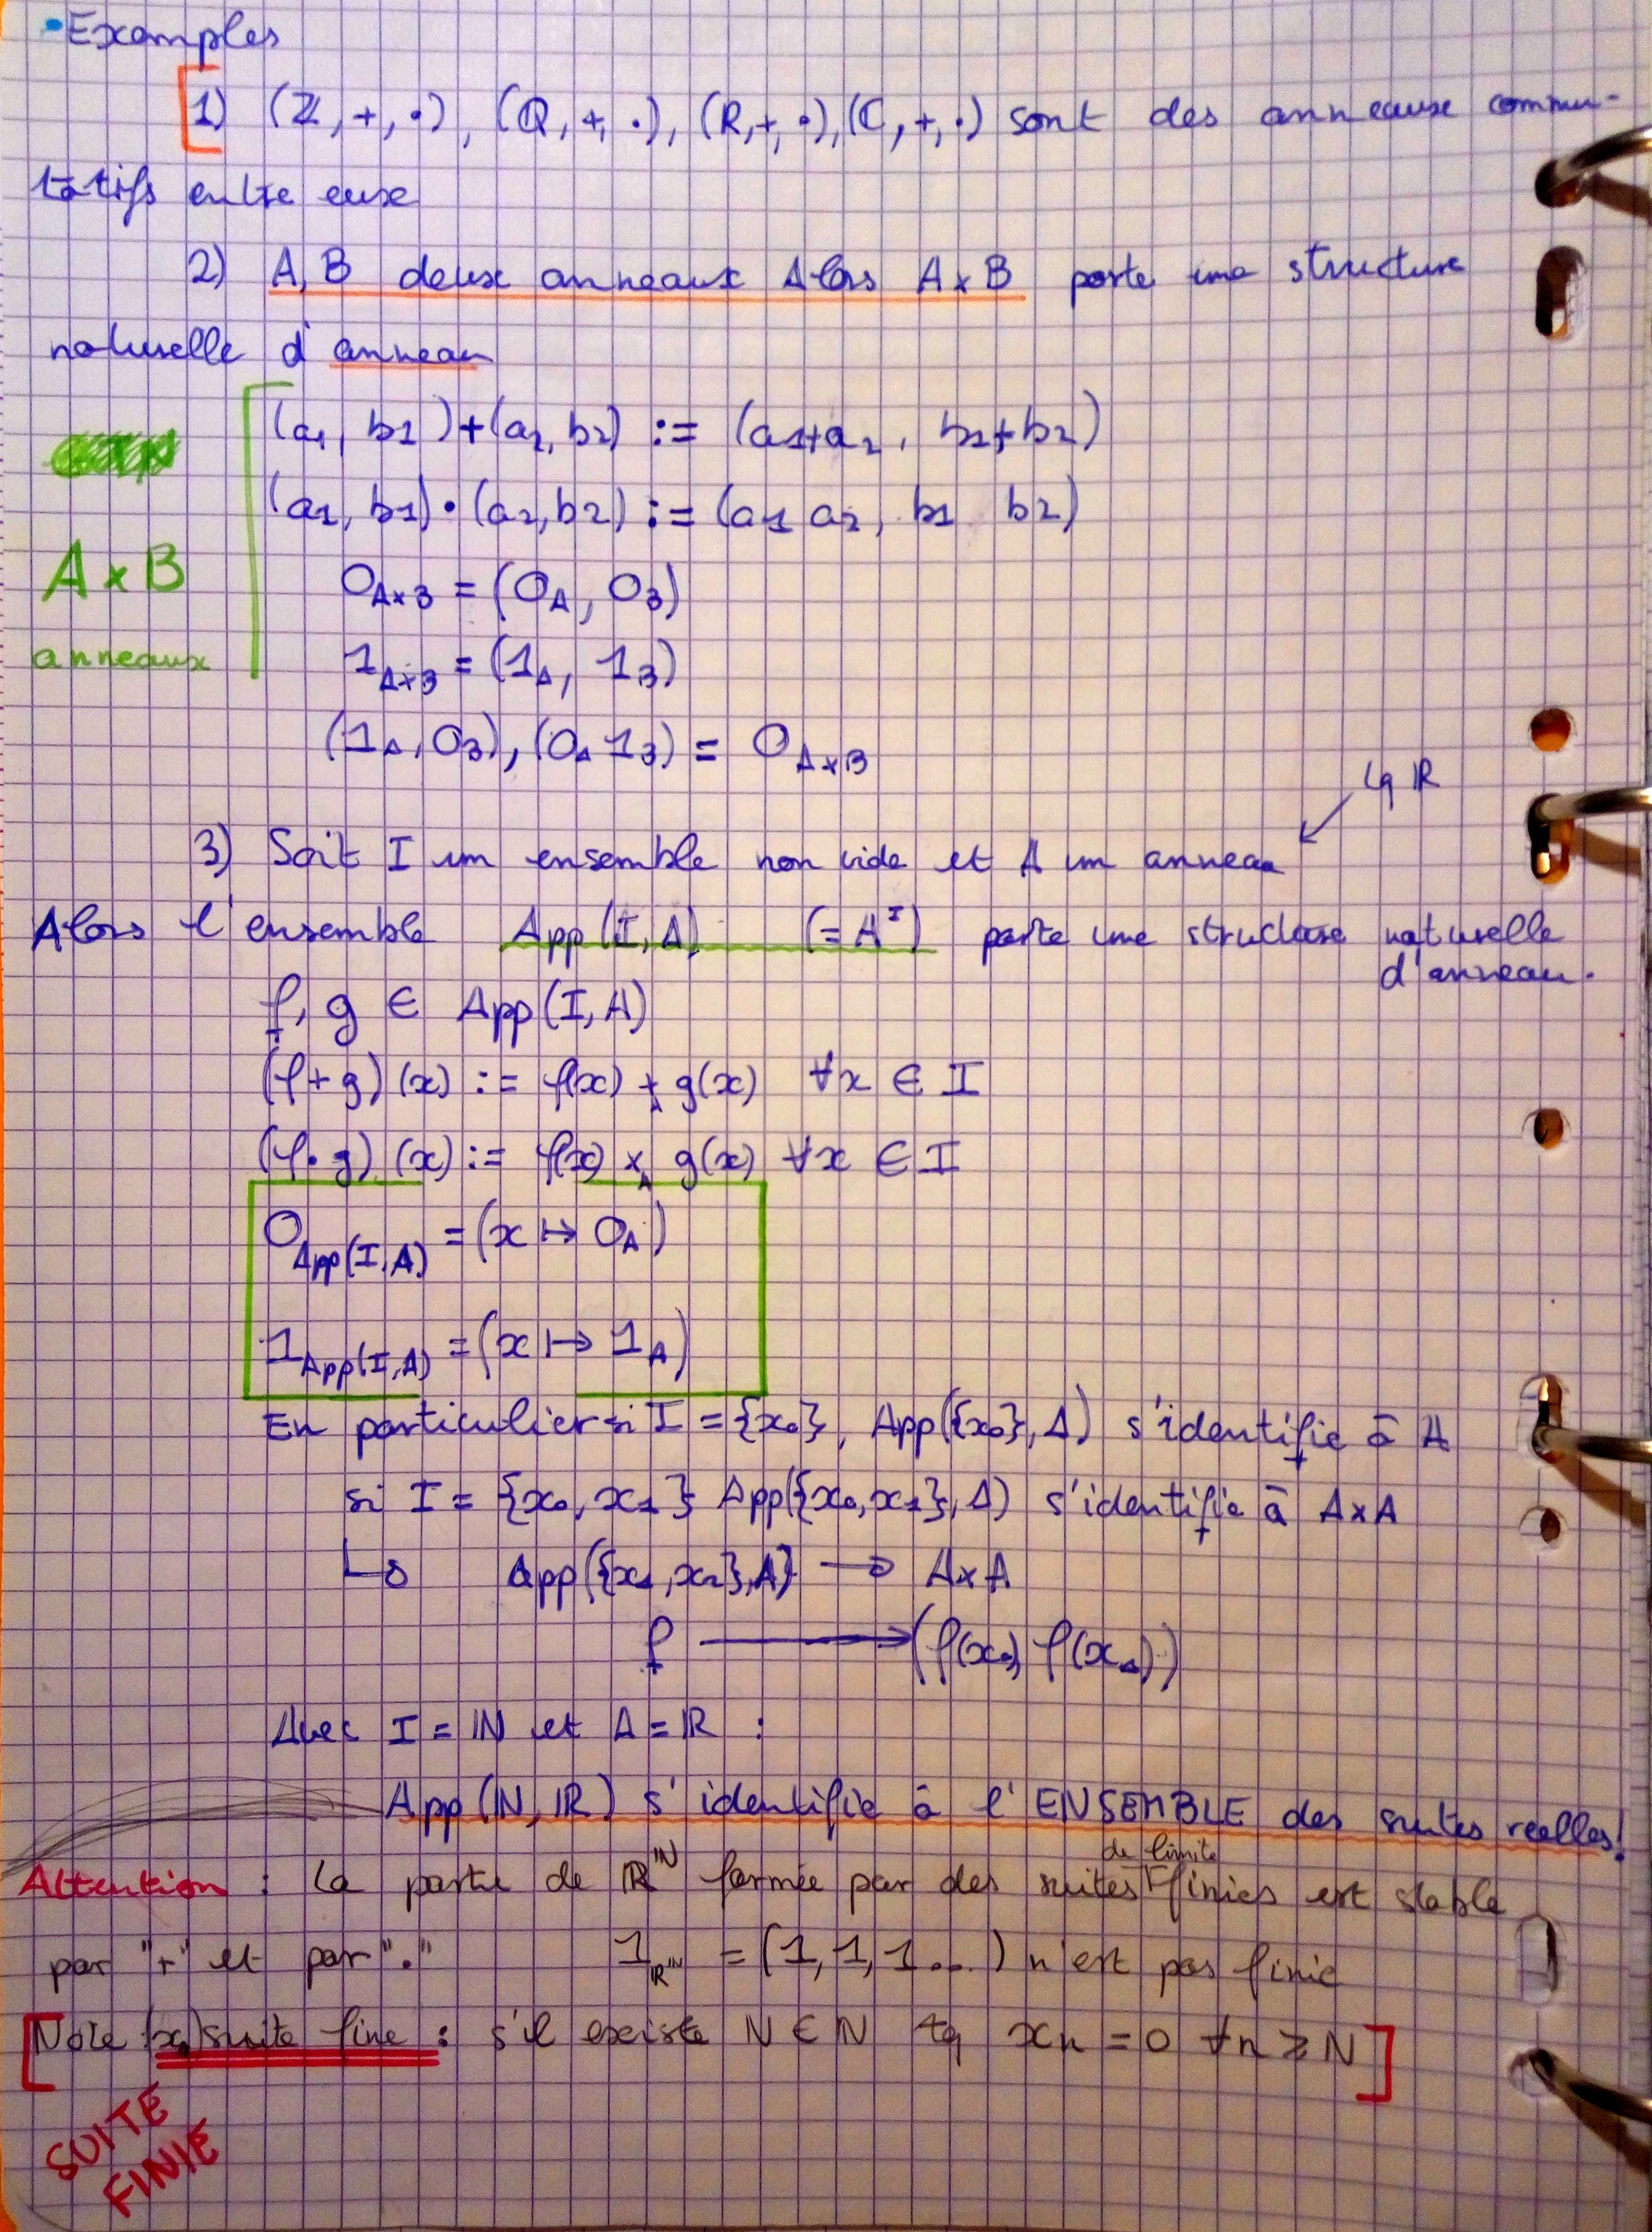 • Examples
1) (ℤ,+,•), (Q,+,.), (R,+,•), (C,+,.) sont des anneaux commu-
tatifs entre eux
2) A, B deux anneaux Alors A×B porte une structure
naturelle d'anneau
(a1, b1)+(a2, b2) := (a1+a2, b1+b2)
(a1, b1)•(a2, b2) := (a1 a2, b1 b2)
A×B
0_{A×B} = (0_A, 0_B)
anneaux
1_{A×B} = (1_A, 1_B)
(1_A, 0_B), (0_A 1_B) = 0_{A×B}
↙ Lq ℝ
3) Soit I un ensemble non vide et A un anneau
Alors l'ensemble App(I,A) (= A^I) porte une structure naturelle
d'anneau.
f, g ∈ App(I,A)
(f+g)(x) := f(x) +_A g(x) ∀x ∈ I
(f•g)(x) := f(x) ×_A g(x) ∀x ∈ I
0_{App(I,A)} = (x ↦ 0_A)
1_{App(I,A)} = (x ↦ 1_A)
En particulier si I = {x₀}, App({x₀},A) s'identifie à A
si I = {x₀, x1} App({x₀,x1},A) s'identifie à A×A
↳ App({x1,x2},A} → A×A
f ⟶ (f(x₀) f(x₁))
Avec I = ℕ et A = ℝ :
App(ℕ,ℝ) s'identifie à l'ENSEMBLE des suites reelles!
Attention : la partie de ℝ^ℕ formée par des suites de limite finies est stable
par "+" et par "." 1_{ℝ^ℕ} = (1,1,1...) n'est pas finie
[Note (xn) suite fine : s'il existe N ∈ N tq xn = 0 ∀n ≥ N]
SUITE
FINIE